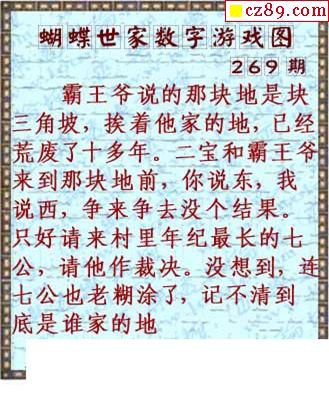 cz89.com
蝴蝶世家数字游戏图
269期
霸王爷说的那块地是块
三角坡，挨着他家的地，已经
荒废了十多年。二宝和霸王爷
来到那块地前，你说东，我
说西，争来争去没个结果。
只好请来村里年纪最长的七
公，请他作裁决。没想到，连
七公也老糊涂了，记不清到
底是谁家的地